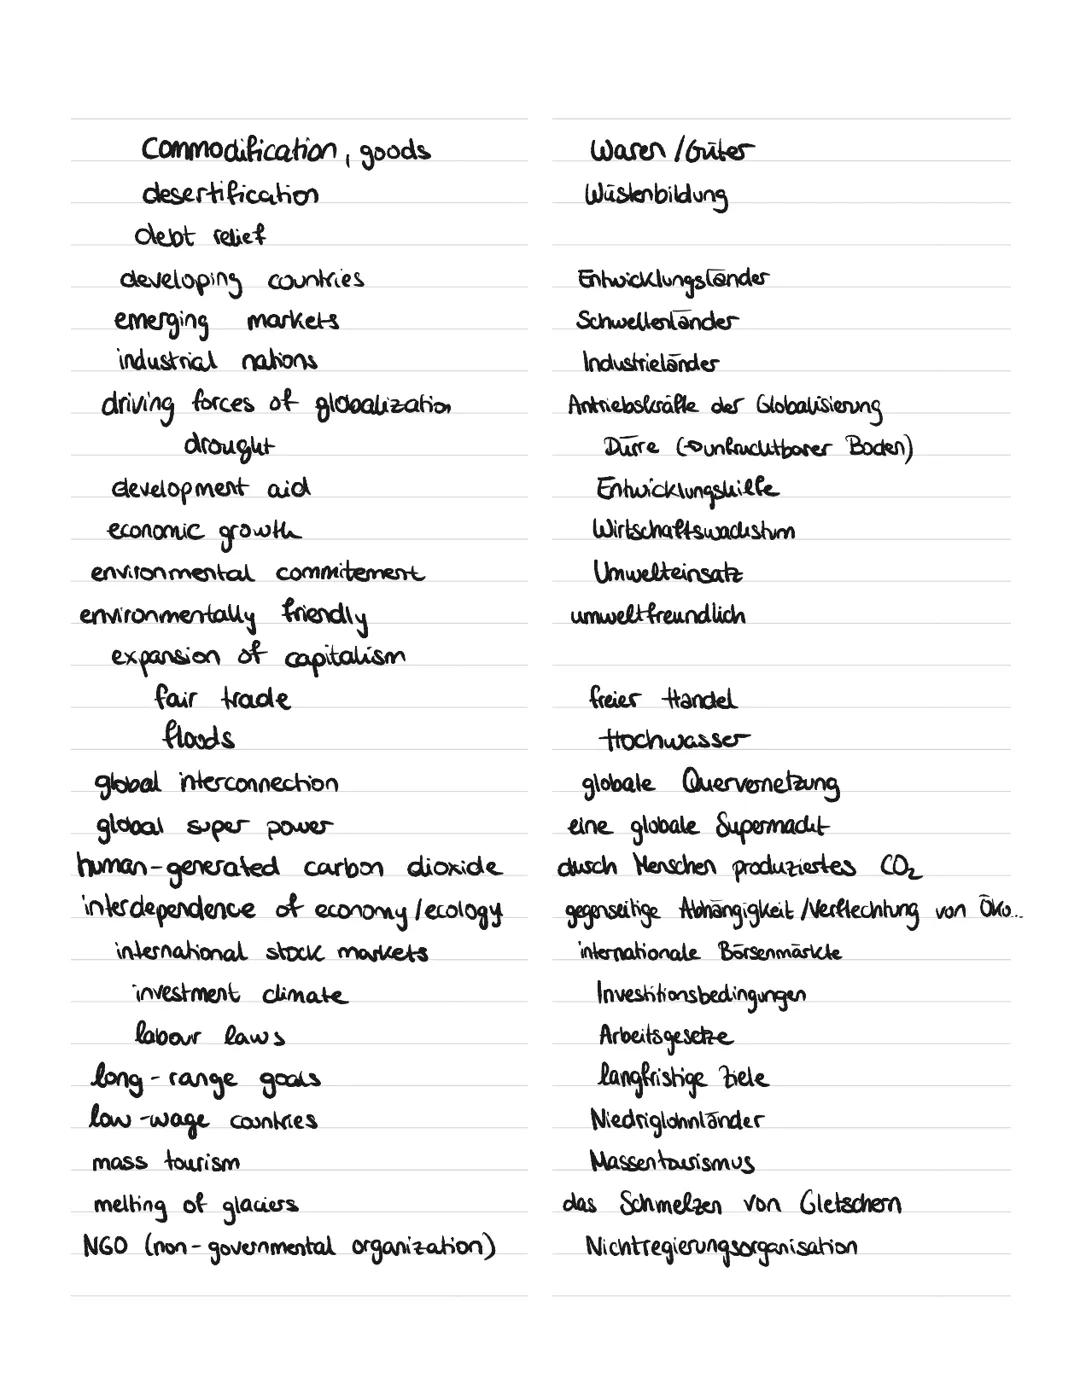 Commodification, goods Waren / Güter
desertification Wüstenbildung
debt relief
developing countries Entwicklungsländer
emerging markets Schwellenländer
industrial nations Industrieländer
driving forces of globalization Antriebskräfte der Globalisierung
drought Dürre (→ unfruchtbarer Boden)
development aid Entwicklungshilfe
economic growth Wirtschaftswachstum
environmental commitement Umwelteinsatz
environmentally friendly umweltfreundlich
expansion of capitalism
fair trade freier Handel
floods Hochwasser
global interconnection globale Quervernetzung
global super power eine globale Supermacht
human-generated carbon dioxide durch Menschen produziertes CO₂
interdependence of economy / ecology gegenseitige Abhängigkeit / Verflechtung von Öko...
international stock markets internationale Börsenmärkte
investment climate Investitionsbedingungen
labour laws Arbeitsgesetze
long-range goals langfristige Ziele
low-wage countries Niedriglohnländer
mass tourism Massentourismus
melting of glaciers das Schmelzen von Gletschern
NGO (non-governmental organization) Nichtregierungsorganisation